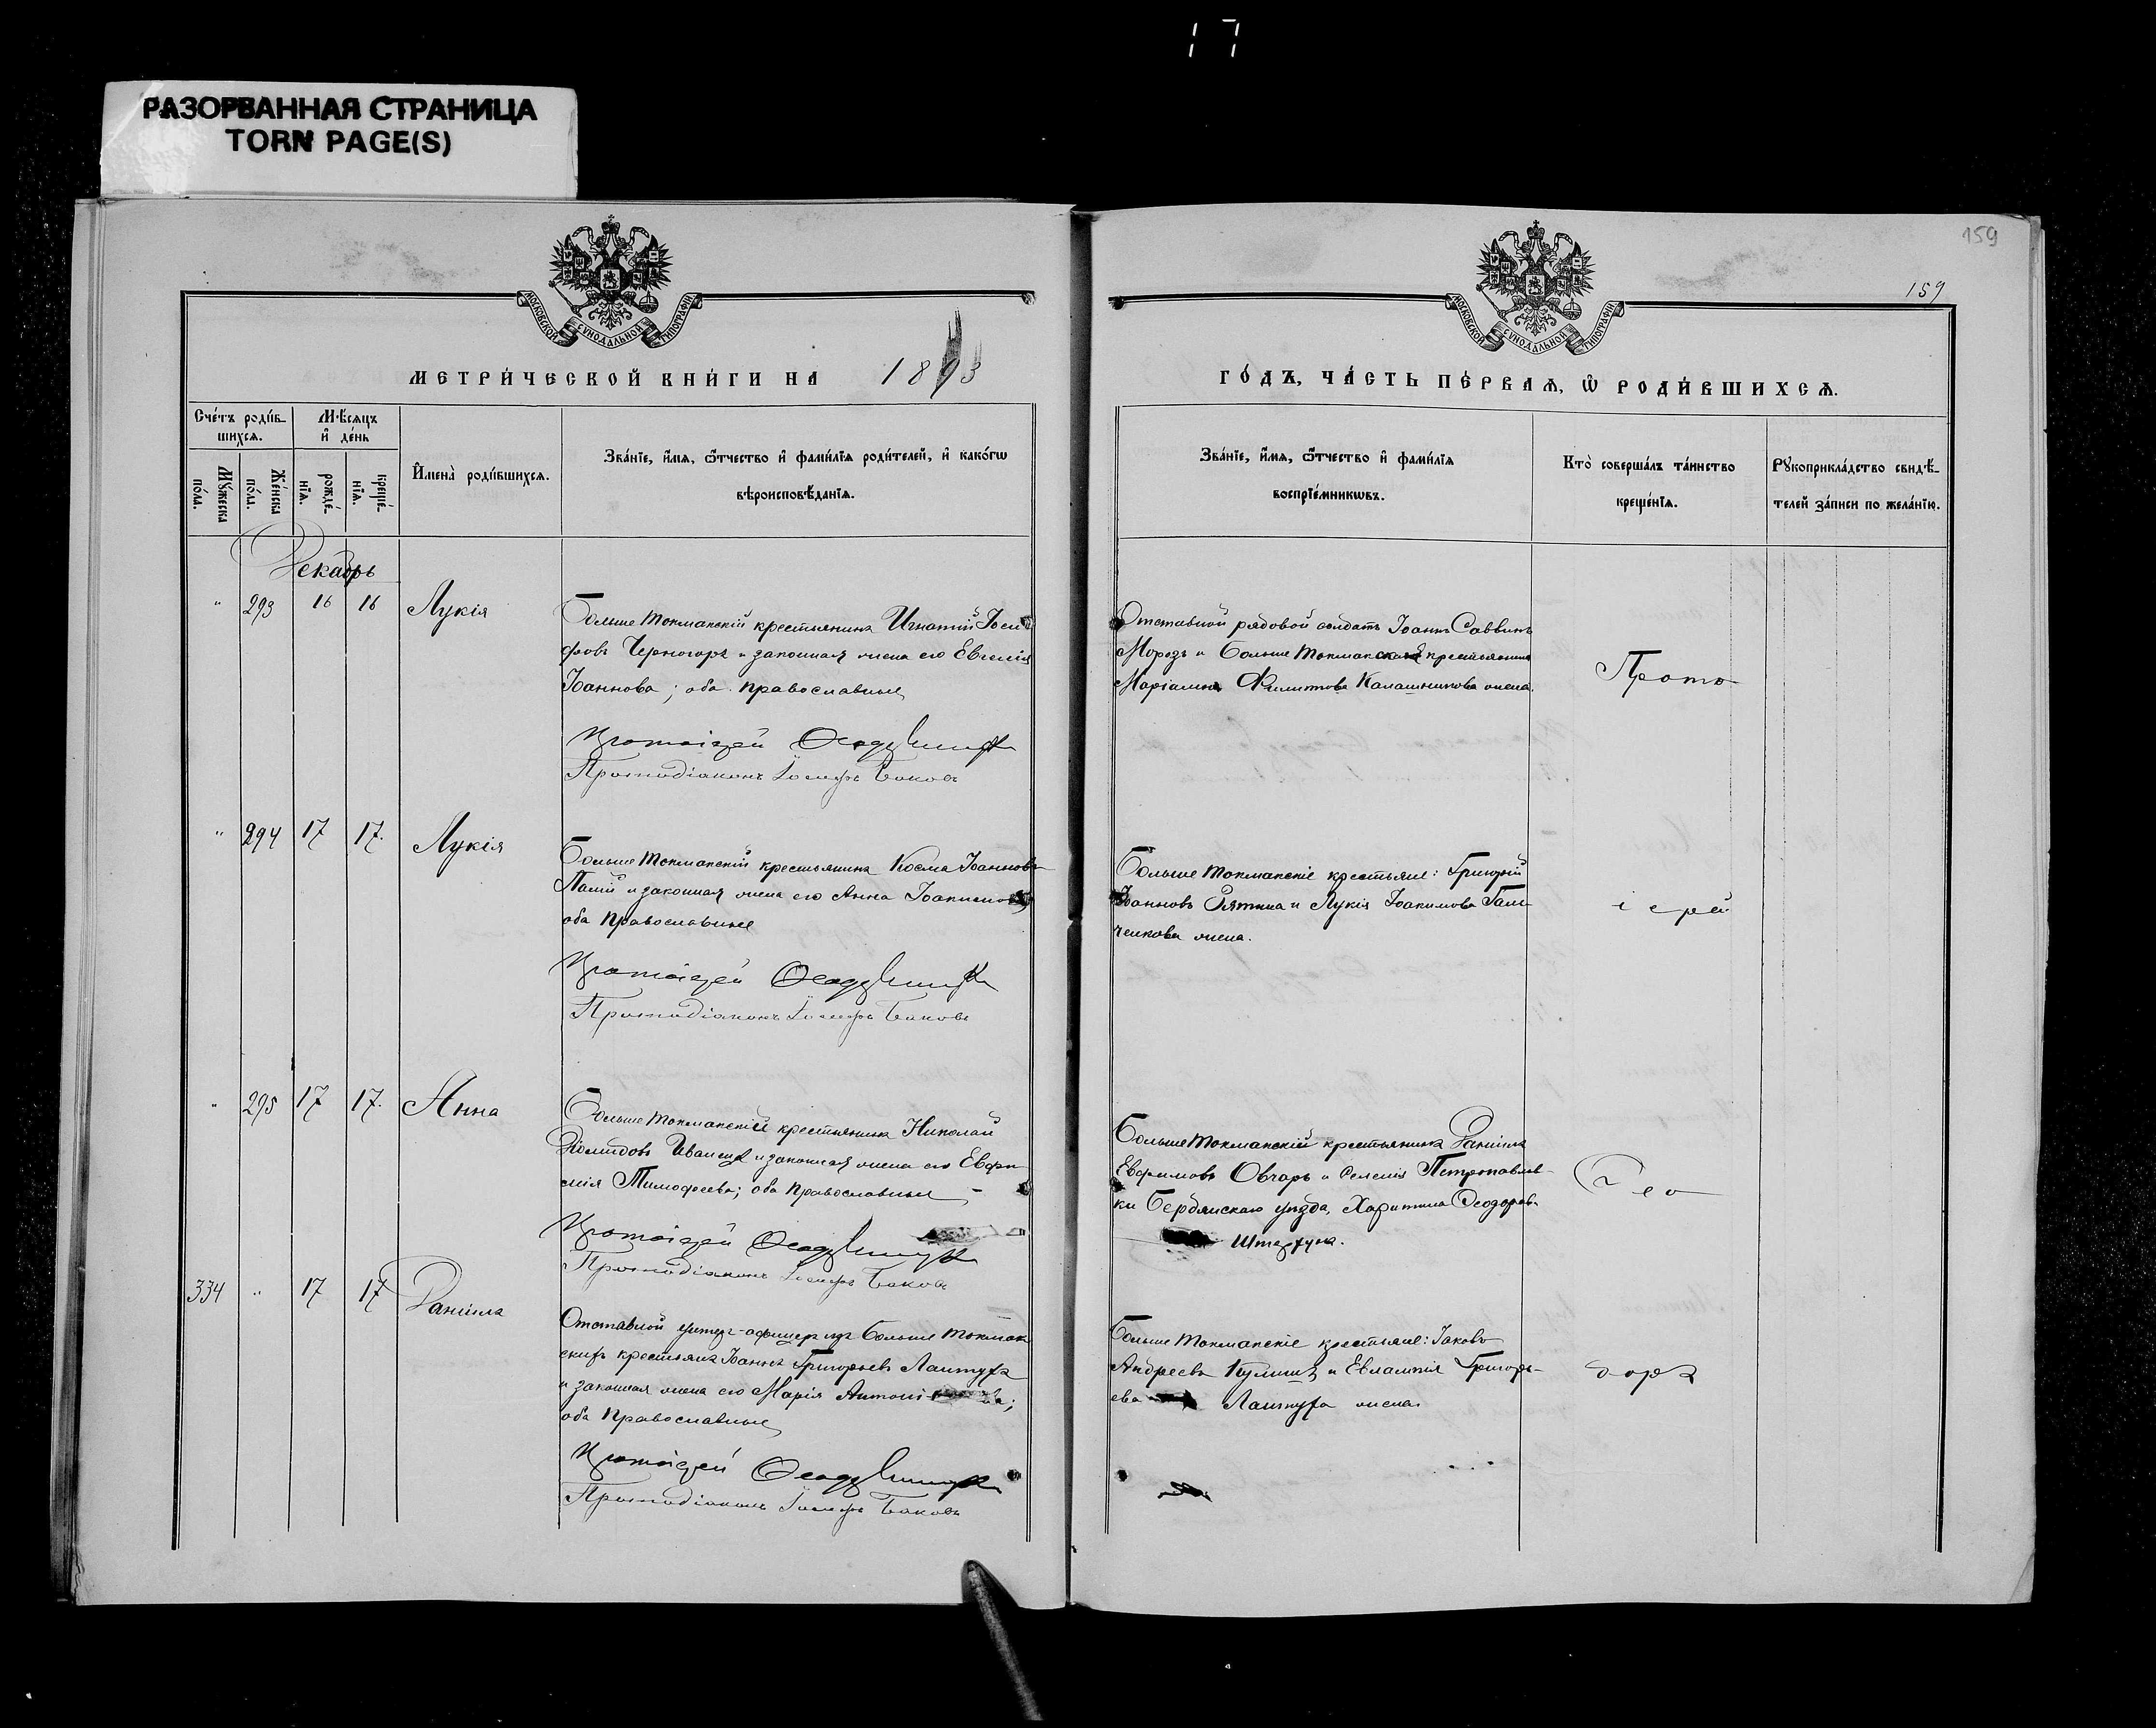 17
РАЗОРВАННАЯ СТРАНИЦА
TORN PAGE(S)
159
159
МОСКОВСКОЙ СѴНОДАЛЬНОЙ ТИПОГРАФІИ
МОСКОВСКОЙ СѴНОДАЛЬНОЙ ТИПОГРАФІИ
МЕТРИ́ЧЕСКОЙ КНИ́ГИ НА 1893
ГО́ДЪ, ЧА́СТЬ ПЕ́РВАѦ, Ѡ҆ РОДИ́ВШИХСѦ.
Сче́тъ роди́в-
шихсѧ.
Мѣ́сѧцъ
и҆ де́нь
Мꙋ́жеска
по́ла.
Же́нска
по́ла.
рожде́-
нїѧ.
креще́-
нїѧ.
И҆мена̀ роди́вшихсѧ.
Зва́нїе, и҆́мѧ, ѻ҆́тчество и҆ фами́лїѧ роди́телей, и҆ како́гѡ
вѣроисповѣ́данїѧ.
Зва́нїе, и҆́мѧ, ѻ҆́тчество и҆ фами́лїѧ
воспрїе́мникѡвъ.
Кто̀ соверша́лъ та́инство
креще́нїѧ.
Рꙋкоприкла́дство свидѣ́-
телей за́писи по жела́нїю.
Декабрь
" 293 16 16 Лукія
Больше Токмакскій крестьянинъ Игнатій Іоси
фовъ Черногоръ и законная жена его Евгенія
Іоаннова; оба православные
Протоіерей
Протодіаконъ Іосифъ Баковъ
Отставной рядовой солдатъ Іоаннъ Саввинъ
Морозъ и Больше Токмакская крестьянина
Маріамна Филиппова Калашникова жена.
Прото
" 294 17 17. Лукія
Больше Токмакскій крестьянинъ Косма Іоанновъ
и законная жена его Анна
оба православные
Протоіерей
Протодіаконъ Іосифъ Баковъ
Больше Токмакскіе крестьяне: Григорій
Іоанновъ и Лукія Іоакимова Галь
ченкова жена.
іерей
" 295 17 17. Анна
Больше Токмакскій крестьянинъ Николай
и законная жена его Евфи
мія Тимофеева; оба православные
Протоіерей
Протодіаконъ Іосифъ Баковъ
Больше Токмакскій крестьянинъ Даніилъ
Евфимовъ Овчаръ и селенія Петропавлов-
ки Бердянскаго уѣзда, Харитина Ѳеодоров-
Гео
334 " 17 17 Даніилъ
Отставной унтер-офицеръ изъ Больше Токмак
скихъ крестьянъ Іоаннъ Григорьевъ
и законная жена его Марія
оба православные
Протоіерей
Протодіаконъ Іосифъ Баковъ
Больше Токмакскіе крестьяне: Іаковъ
Андреевъ Кулишъ и Евлампія Григорь-
ева жена.
доръ